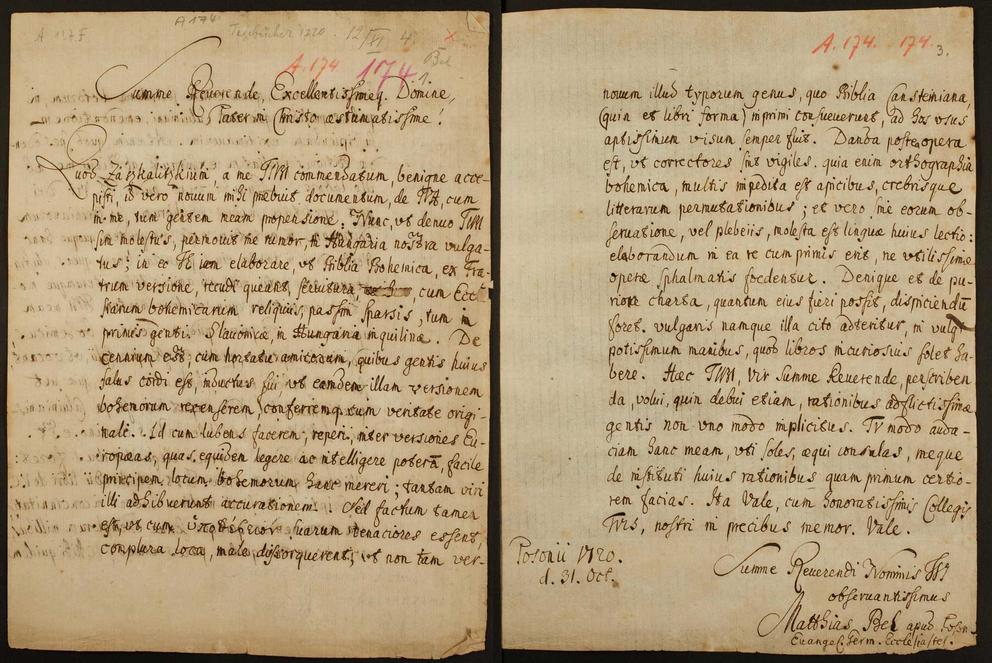 A 174
Tagebücher 1720. 12/VI 4 x
A 117 F
A. 174 1174 Bel
1.
Summe Reuerende, Excellentissimeq. Domine,
Pater in Christo aestumatissime!
Quod Zaskalitzkium, a me TIbI commendatum, benigne acce-
pisti, id vero nouum mihi praebuit documentum, de TVA, cum
in me, tum gentem meam propensione. Nunc, vt denuo TIbI
sim molestus, permouit me rumor, in Hungaria nostra vulga-
tus; in eo TE iam elaborare, vt Biblia Bohemica, ex Fra-
trum versione, recudi queant, seruitura cum Eccl
siarum bohemicarum reliquiis, passim sparsis, tum in
primis genti Slauonicae, in Hungaria inquilinae. De
cennium est; cum hortatu amicorum, quibus gentis huius
salus cordi est, inductus fui vt eamdem illam versionem
bohemorum recenserem, conferremq. cum veritate origi-
nali. Id cum lubens facerem, reperi, inter versiones Eu-
ropaeas, quas equidem legere ac intelligere poteram, facile
principem locum, bohemorum hanc mereri; tantam viri
illi adhibuerunt accurationem. Sed factum tamen
est, vt cum ὑποθέσεων suarum tenaciores essent,
complura loca, male distorquerent; vt non tam ver-
A. 174. 174. 3.
nouum illud typorum genus, quo Biblia Cansteiniana,
(quin et libri forma) imprimi consueuerunt, ad hos vsus
aptissimum visum semper fuit. Danda postea opera
est, vt correctores sint vigiles. quia enim orthographia
bohemica, multis impedita est apicibus, crebrisque
litterarum permutationibus; et vero sine eorum ob-
seruatione, vel plebeiis, molesta est linguae huius lectio:
elaborandum in ea re cum primis erit, ne vtilissimae
operae sphalmatis foedentur. Denique et de pu-
riore charta, quantum eius fieri possit, dispiciendū
foret. vulgaris namque illa cito adteritur, in vulgi
potissimum manibus, quod libros incuriosius solet ha-
bere. Haec TIbI, Vir Summe Reuerende, perscriben
da, volui, quin debui etiam, rationibus adflictissimae
gentis non vno modo implicitus. TV modo auda-
ciam hanc meam, vti soles, aequi consulas, meque
de instituti huius rationibus quam primum certio-
rem facias. Ita Vale, cum honoratissimis Collegis
TVIS, nostri in precibus memor. Vale.
Posonii 1720.
d. 31. Oct.
Summe Reuerendi Nominis TVI
obseruantissimus
Matthias Bel apud Poson.
Euangel. Germ. Ecclesiastes.